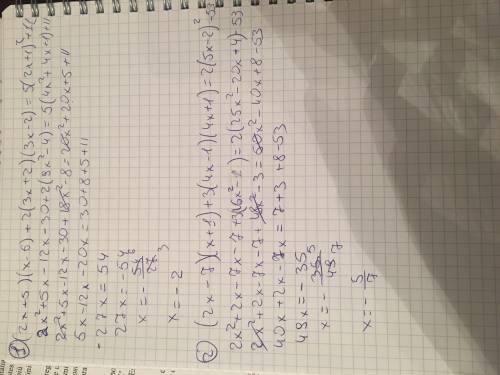 ① (2x+5)(x-6)+2(3x+2)(3x-2)=5(2x+1)²+11
2x²+5x-12x-30+2(9x²-4)=5(4x²+4x+1)+11
2x²+5x-12x-30+18x²-8=20x²+20x+5+11
5x-12x-20x=30+8+5+11
-27x=54
27x=-54
x=-54/27
x=-2
② (2x-7)(x+1)+3(4x-1)(4x+1)=2(5x-2)²-53
2x²+2x-7x-7+3(16x²-1)=2(25x²-20x+4)-53
2x²+2x-7x-7+48x²-3=50x²-40x+8-53
40x+2x-7x=7+3+8-53
x=-5/7